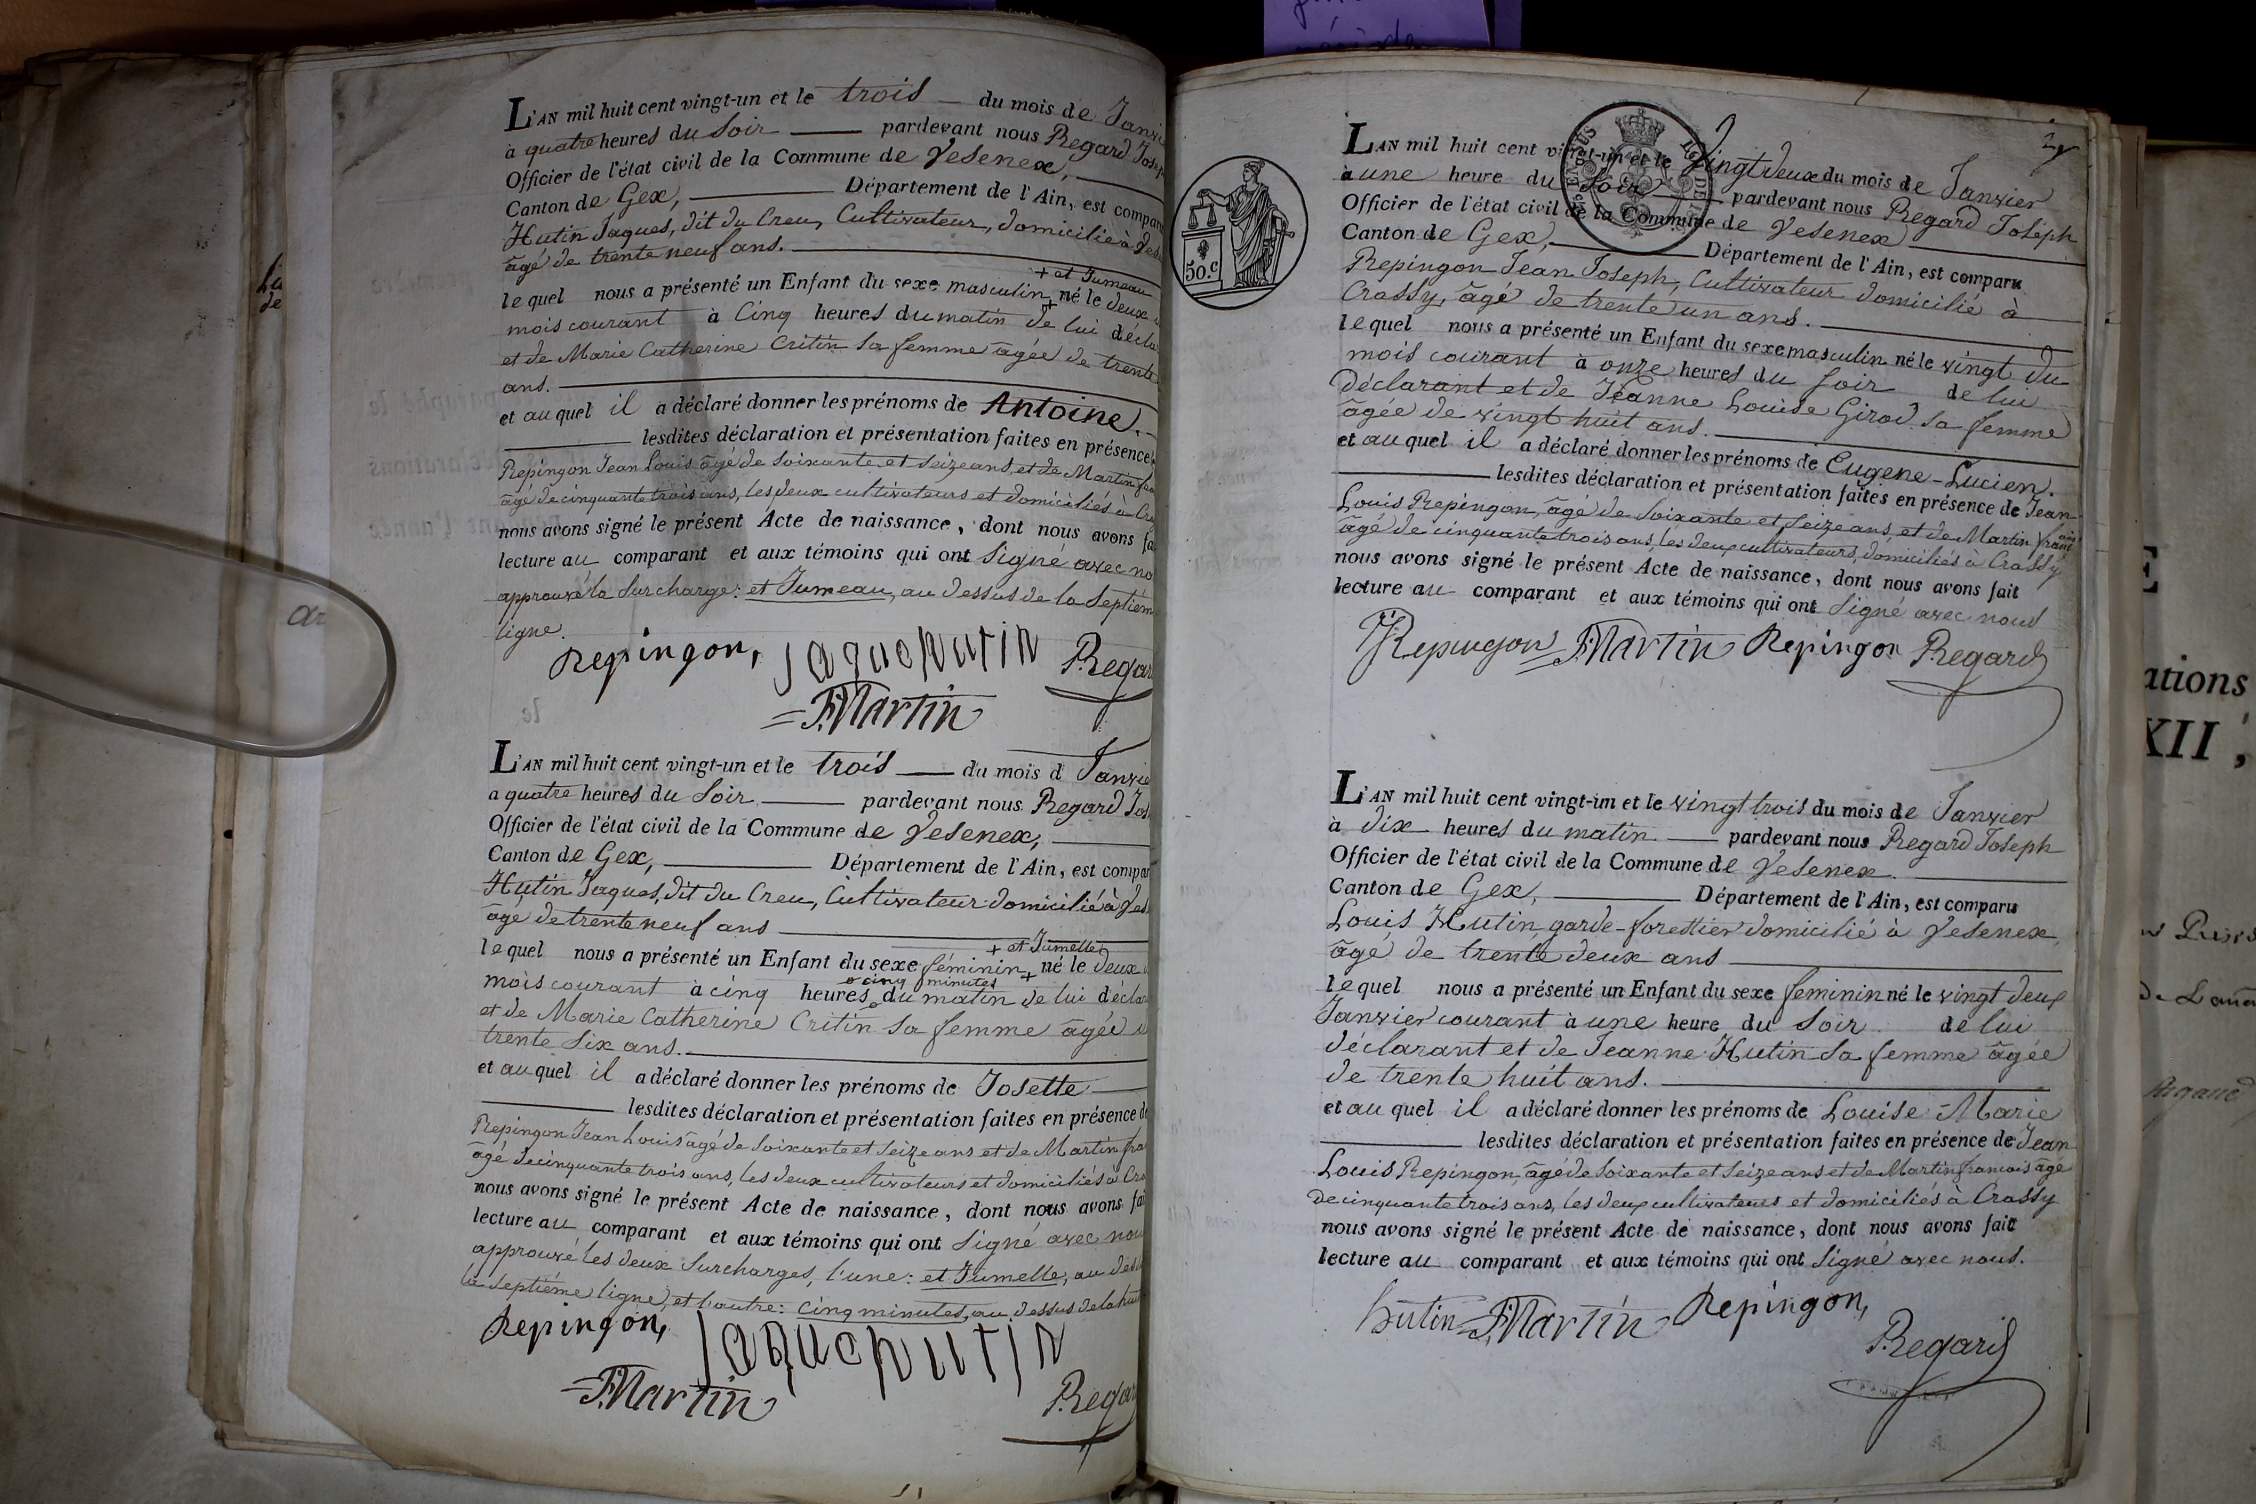 L'AN mil huit cent vingt-un et le trois du mois de Janvie
a quatre heures du Soir pardevant nous Regard Josep
Officier de l'état civil de la Commune de Vesenex,
Canton de Gex, Département de l'Ain, est compar
Hutin Jaques, dit du Creu, Cultivateur, domicilié à Ves
âgé de trente neuf ans.
+ et Jumeau
le quel nous a présenté un Enfant du sexe masculin + né le deux
mois courant à Cinq heures du matin de lui décla
et de Marie Catherine Critin sa femme âgée de trente
ans.
et au quel il a déclaré donner les prénoms de Antoine.
lesdites déclaration et présentation faites en présence
Repingon Jean Louis âgé de soixante et seize ans et de Martin fran
âgé de cinquante trois ans, les deux cultivateurs et domiciliés à Cra
nous avons signé le présent Acte de naissance, dont nous avons fa
lecture au comparant et aux témoins qui ont Signé avec no
approuvé la Surcharge: et Jumeau, au dessus de la Septiem
ligne.
Repingon, Jaque hutin Regar
F. Martin
L'AN mil huit cent vingt-un et le trois du mois d Janvie
a quatre heures du Soir pardevant nous Regard Jos
Officier de l'état civil de la Commune de Vesenex,
Canton de Gex, Département de l'Ain, est compar
Hutin Jaques, dit du Creu, Cultivateur domicilié à Ves
âgé de trente neuf ans
+ et Jumelle
le quel nous a présenté un Enfant du sexe féminin + né le deux
cinq minutes
mois courant à cinq heures du matin de lui décla
et de Marie Catherine Critin sa femme âgée
trente Six ans.
et au quel il a déclaré donner les prénoms de Josette
lesdites déclaration et présentation faites en présence de
Repingon Jean Louis âgé de soixante et seize ans et de Martin fra
âgé de cinquante trois ans, les deux cultivateurs et domiciliés à Cra
nous avons signé le présent Acte de naissance, dont nous avons fai
lecture au comparant et aux témoins qui ont Signé avec nou
approuvé les deux Surcharges, l'une: et Jumelle, au des
la Septième ligne, et l'autre: cinq minutes, au dessus de la hui
Repingon, Jaque hutin
F. Martin Regar
2
L'AN mil huit cent vingt-un et le Vingt deux du mois de Janvier
a une heure du Soir pardevant nous Regard Joseph
Officier de l'état civil de la Commune de Vesenex
Canton de Gex, Département de l'Ain, est comparu
50.c
Repingon Jean Joseph, Cultivateur domicilié à
Crassy, âgé de trente un ans.
le quel nous a présenté un Enfant du sexe masculin né le vingt du
mois courant à onze heures du Soir de lui
déclarant et de Jeanne Louise Girod sa femme
âgée de vingt huit ans.
et au quel il a déclaré donner les prénoms de Eugene-Lucien.
lesdites déclaration et présentation faites en présence de Jean
Louis Repingon, âgé de Soixante et Seize ans, et de Martin françois
âgé de cinquante trois ans, les deux cultivateurs, domiciliés à Crassy
nous avons signé le présent Acte de naissance, dont nous avons fait
lecture au comparant et aux témoins qui ont Signé avec nous
JJ Repingon F. Martin Repingon Regard
L'AN mil huit cent vingt-un et le vingt trois du mois de Janvier
à dix heures du matin pardevant nous Regard Joseph
Officier de l'état civil de la Commune de Vesenex.
Canton de Gex, Département de l'Ain, est comparu
Louis Hutin, garde-forestier domicilié à Vesenex
âgé de trente deux ans
le quel nous a présenté un Enfant du sexe feminin né le vingt deux
Janvier courant à une heure du Soir de lui
déclarant et de Jeanne Hutin sa femme âgée
de trente huit ans.
et au quel il a déclaré donner les prénoms de Louise-Marie
lesdites déclaration et présentation faites en présence de Jean
Louis Repingon, âgé de Soixante et Seize ans et de Martin francois âgé
de cinquante trois ans, les deux cultivateurs et domiciliés à Crassy
nous avons signé le présent Acte de naissance, dont nous avons fait
lecture au comparant et aux témoins qui ont Signé avec nous.
hutin F. Martin Repingon,
Regard
ations
XII,